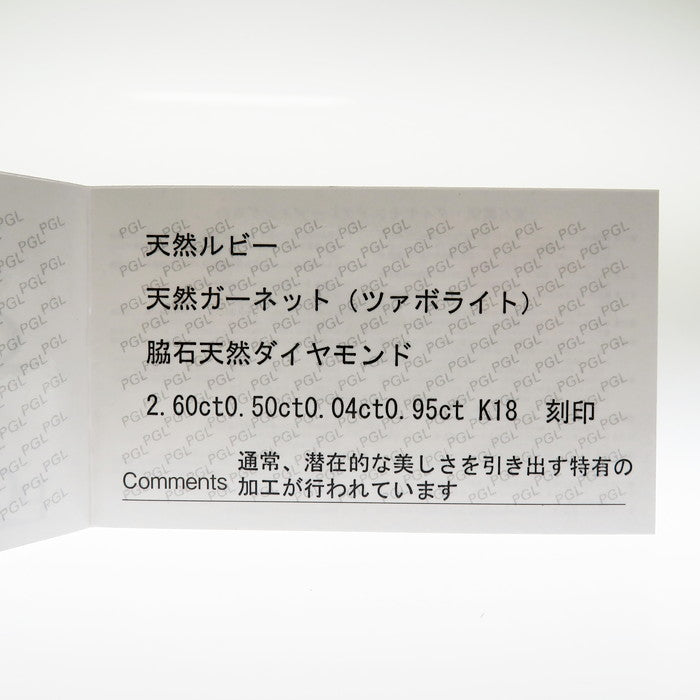 天然ルビー
天然ガーネット（ツァボライト）
脇石天然ダイヤモンド
2.60ct0.50ct0.04ct0.95ct K18 刻印
Comments 通常、潜在的な美しさを引き出す特有の
加工が行われています